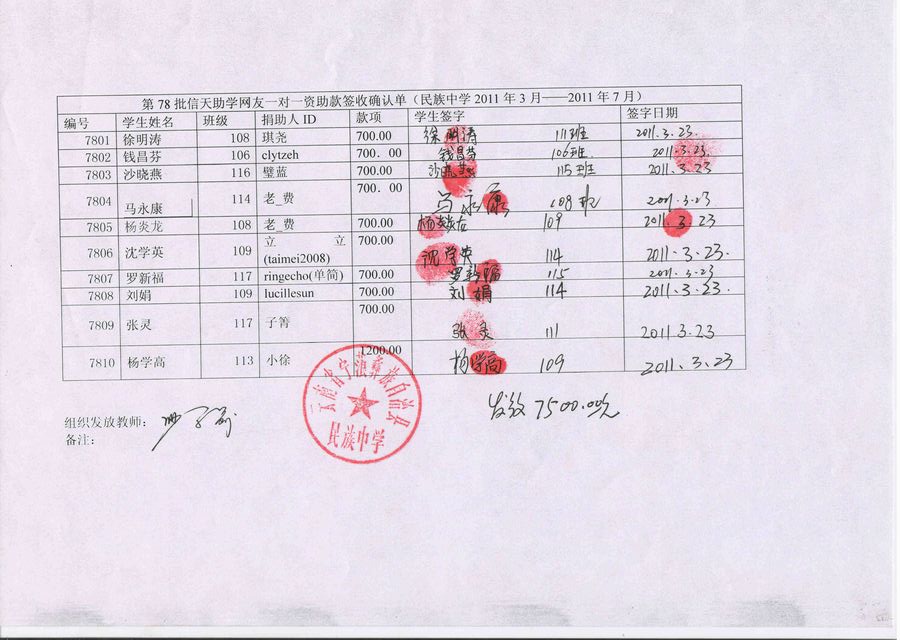 第 78 批信天助学网友一对一资助款签收确认单（民族中学 2011 年 3 月——2011 年 7 月）
编号 学生姓名 班级 捐助人 ID 款项 学生签字 签字日期
7801 徐明涛 108 琪尧 700.00 徐明涛 111班 2011.3.23
7802 钱昌芬 106 clytzeh 700. 00 钱昌芬 106班. 2011.3.23.
7803 沙晓燕 116 璧蓝 700.00 沙晓燕 115班 2011.3.23
7804 马永康 114 老_费 700. 00 马永康 108班 2011.3.23
7805 杨炎龙 108 老_费 700.00 杨炎龙 109 2011.3.23
7806 沈学英 109 立 立 700.00 沈学英 114 2011.3.23.
(taimei2008)
7807 罗新福 117 ringecho(单简) 700.00 罗新福 115 2011.3.23
7808 刘娟 109 lucillesun 700.00 刘娟 114 2011.3.23.
7809 张灵 117 子箐 700.00 张灵 111 2011.3.23
7810 杨学高 113 小徐 1200.00 杨学高 109 2011.3.23
云南省宁蒗彝族自治县
民族中学
发放 7500.00元
组织发放教师：
备注：